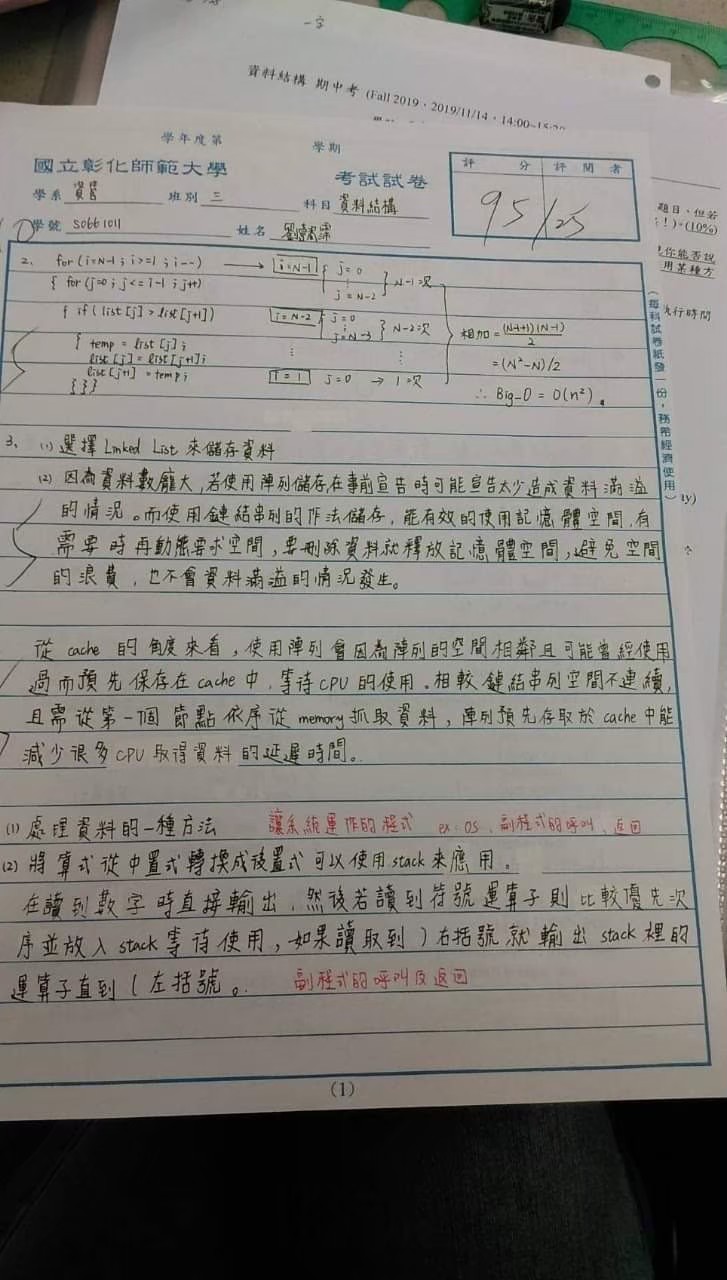 一字
資料結構 期中考 (Fall 2019，2019/11/14，14:00~15:20
學年度第 學期
國立彰化師範大學 考試試卷
評分 評閱者
學系 資管 班別 三 科目 資料結構
95/25
學號 S0661011 姓名
題目，但若
:！)。(10%)
你能否說
用某種方
執行時間
(每科試卷紙發一份，務希經濟使用)
2. for (i=N-1; i>=1; i--) → i=N-1 { j=0 ⋮ j=N-2 } N-1次
{ for (j=0; j<=i-1; j++)
{ if (list[j] > list[j+1]) i=N-2 { j=0 ⋮ j=N-3 } N-2次 相加 = (N-1+1)(N-1)/2
{ temp = list[j];
list[j] = list[j+1]; ⋮ ⋮ = (N²-N)/2
list[j+1] = temp; i=1 j=0 → 1次
}}} ∴ Big-O = O(n²)。
3. (1) 選擇 Linked List 來儲存資料
(2) 因為資料數龐大，若使用陣列儲存，在事前宣告時可能宣告太少造成資料滿溢
的情況。而使用鏈結串列的作法儲存，能有效的使用記憶體空間，有
需要時再動態要求空間，要刪除資料就釋放記憶體空間，避免空間
的浪費，也不會資料滿溢的情況發生。
從 cache 的角度來看，使用陣列會因為陣列的空間相鄰且可能曾經使用
過而預先保存在 cache 中，等待 CPU 的使用。相較鏈結串列空間不連續，
且需從第一個節點依序從 memory 抓取資料，陣列預先存取於 cache 中能
減少很多 CPU 取得資料的延遲時間。
(1) 處理資料的一種方法 讓系統運作的程式 ex: OS、副程式的呼叫、返回
(2) 將算式從中置式轉換成後置式可以使用 stack 來應用。
在讀到數字時直接輸出，然後若讀到符號運算子則比較優先次
序並放入 stack 等待使用，如果讀取到 ) 右括號就輸出 stack 裡的
運算子直到 ( 左括號。 副程式的呼叫及返回
(1)